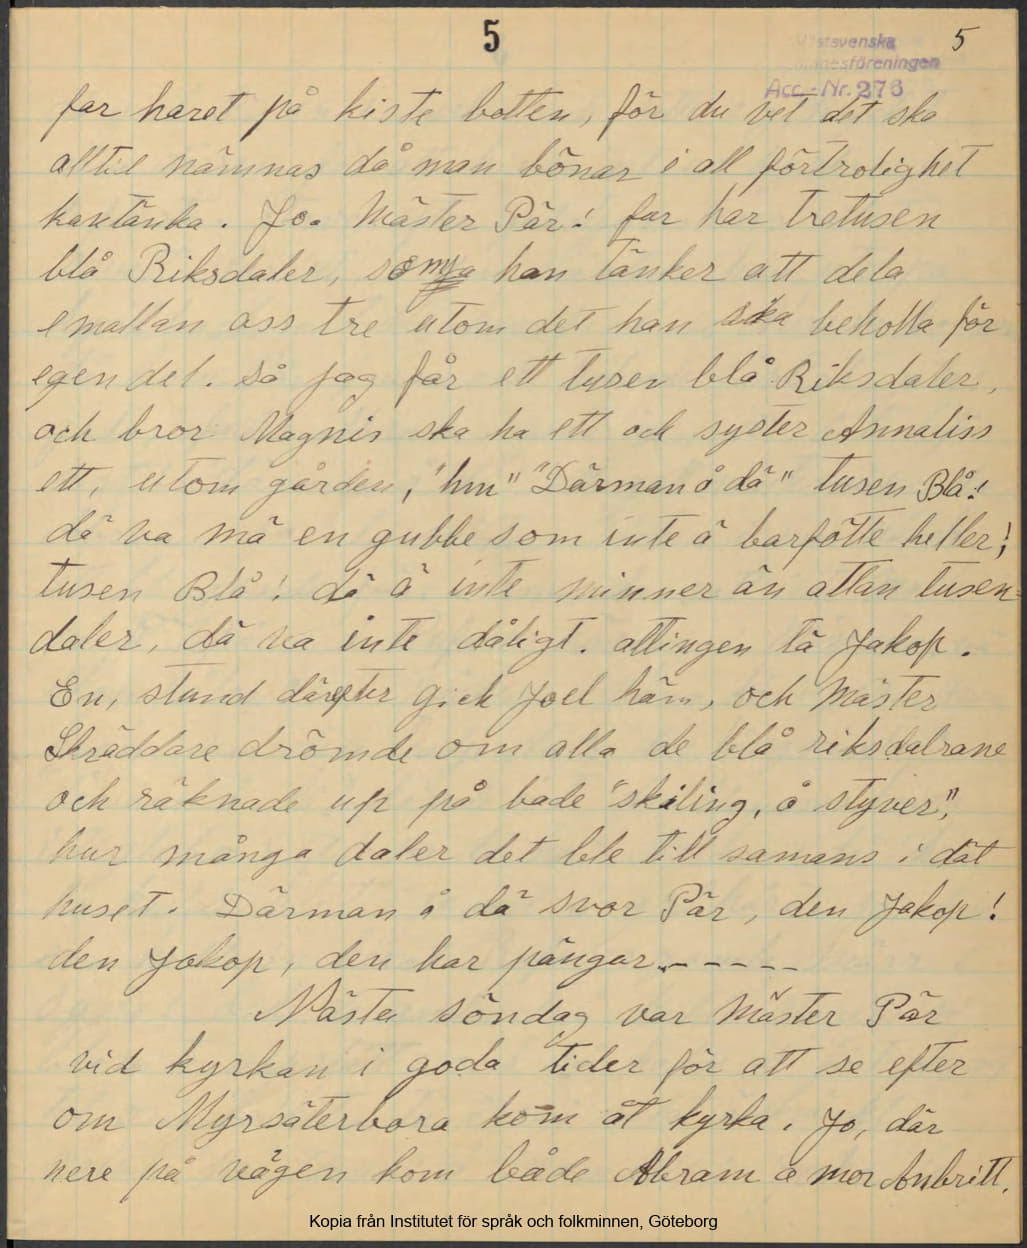 5
Västsvenska
Folkminnesföreningen
Acc.-Nr. 276
5
far haret på kiste botten, för du vet det ska
alltil nämnas då man bönar i all förtrolighet
kantänka. Jo. Mäster Pär! far har tretusen
blå Riksdaler, som han tänker att dela
emallan oss tre utom det han ska beholla för
egen del. så jag får ett tusen blå Riksdaler,
och bror Magnis ska ha ett och syster Annaliss
ett, utom gården, "hm" "Därman å dä" tusen Blå!
dä va mä en gubbe som inte ä barfötte heller!
tusen Blå! dä ä inte minner än attan tusen-
daler, dä va inte dåligt. attingen tä Jakop.
En, stund därefter gick Joel häm, och Mäster
Skräddare drömde om alla de blå riksdalrane
och räknade up på bade "skiling, å styver,"
hur många daler det ble till samans i dät
huset. Därman å dä svor Pär, den Jakop!
den Jakop, den har pängar. - - - - -
Nästa söndag var Mäster Pär
vid kyrkan i goda tider för att se efter
om Myrsäterbora kom åt kyrka. Jo, där
nere på vägen kom både Abram å mor Anbritt.
Kopia från Institutet för språk och folkminnen, Göteborg